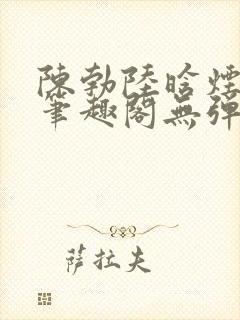 陳勃陸晗煙
筆趣閣無彈
萨拉夫